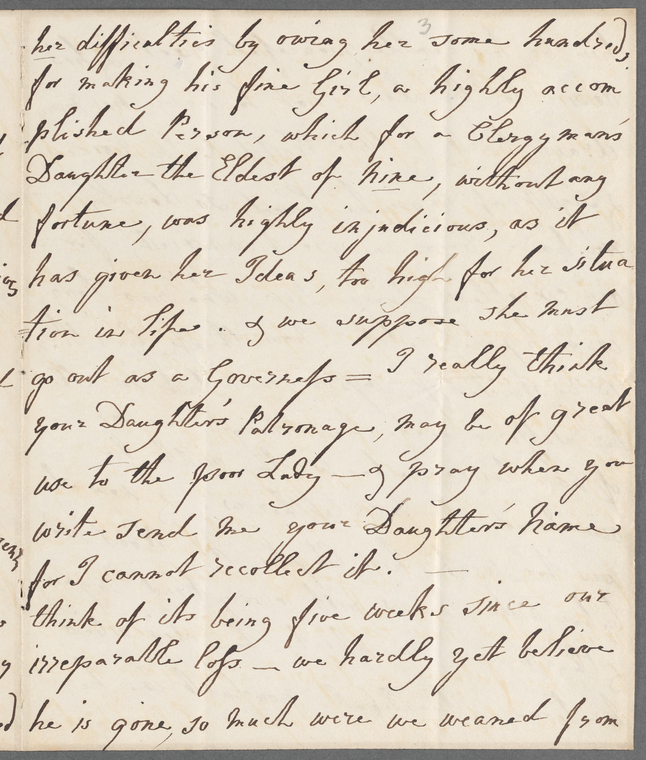 3
her difficulties by owing her some hundreds,
for making his fine Girl, a highly accom
plished Person, which for a Clergymans
Daughter the Eldest of nine, without any
fortune, was highly injudicious, as it
has given her Ideas, too high for her situa
=tion in life. & we suppose she must
go out as a Governess = I really think
your Daughter's Patronage, may be of great
use to the poor Lady — & pray when you
write send me your Daughter's Name
for I cannot recollect it. —
think of its being five weeks since our
irreparable loss — we hardly yet believe
he is gone, so much were we weaned from